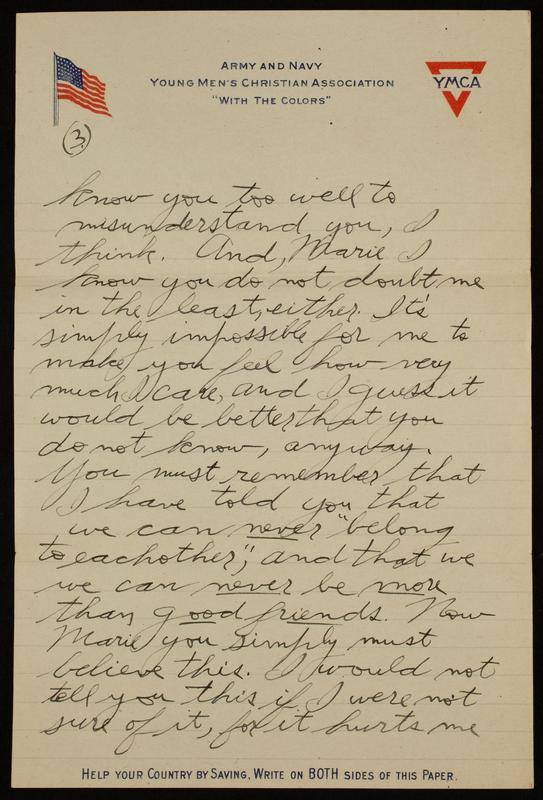 ARMY AND NAVY
YOUNG MEN'S CHRISTIAN ASSOCIATION
"WITH THE COLORS"
YMCA
(3)
know you too well to
misunderstand you, I
think. And, Marie I
know you do not doubt me
in the least, either. It's
simply impossible for me to
make you feel how very
much I care, and I guess it
would be better that you
do not know, anyway.
You must remember that
I have told you that
we can never "belong
to eachother", and that we
we can never be more
than good friends. Now
Marie you simply must
believe this. I would not
tell you this if I were not
sure of it, for it hurts me
HELP YOUR COUNTRY BY SAVING, WRITE ON BOTH SIDES OF THIS PAPER.